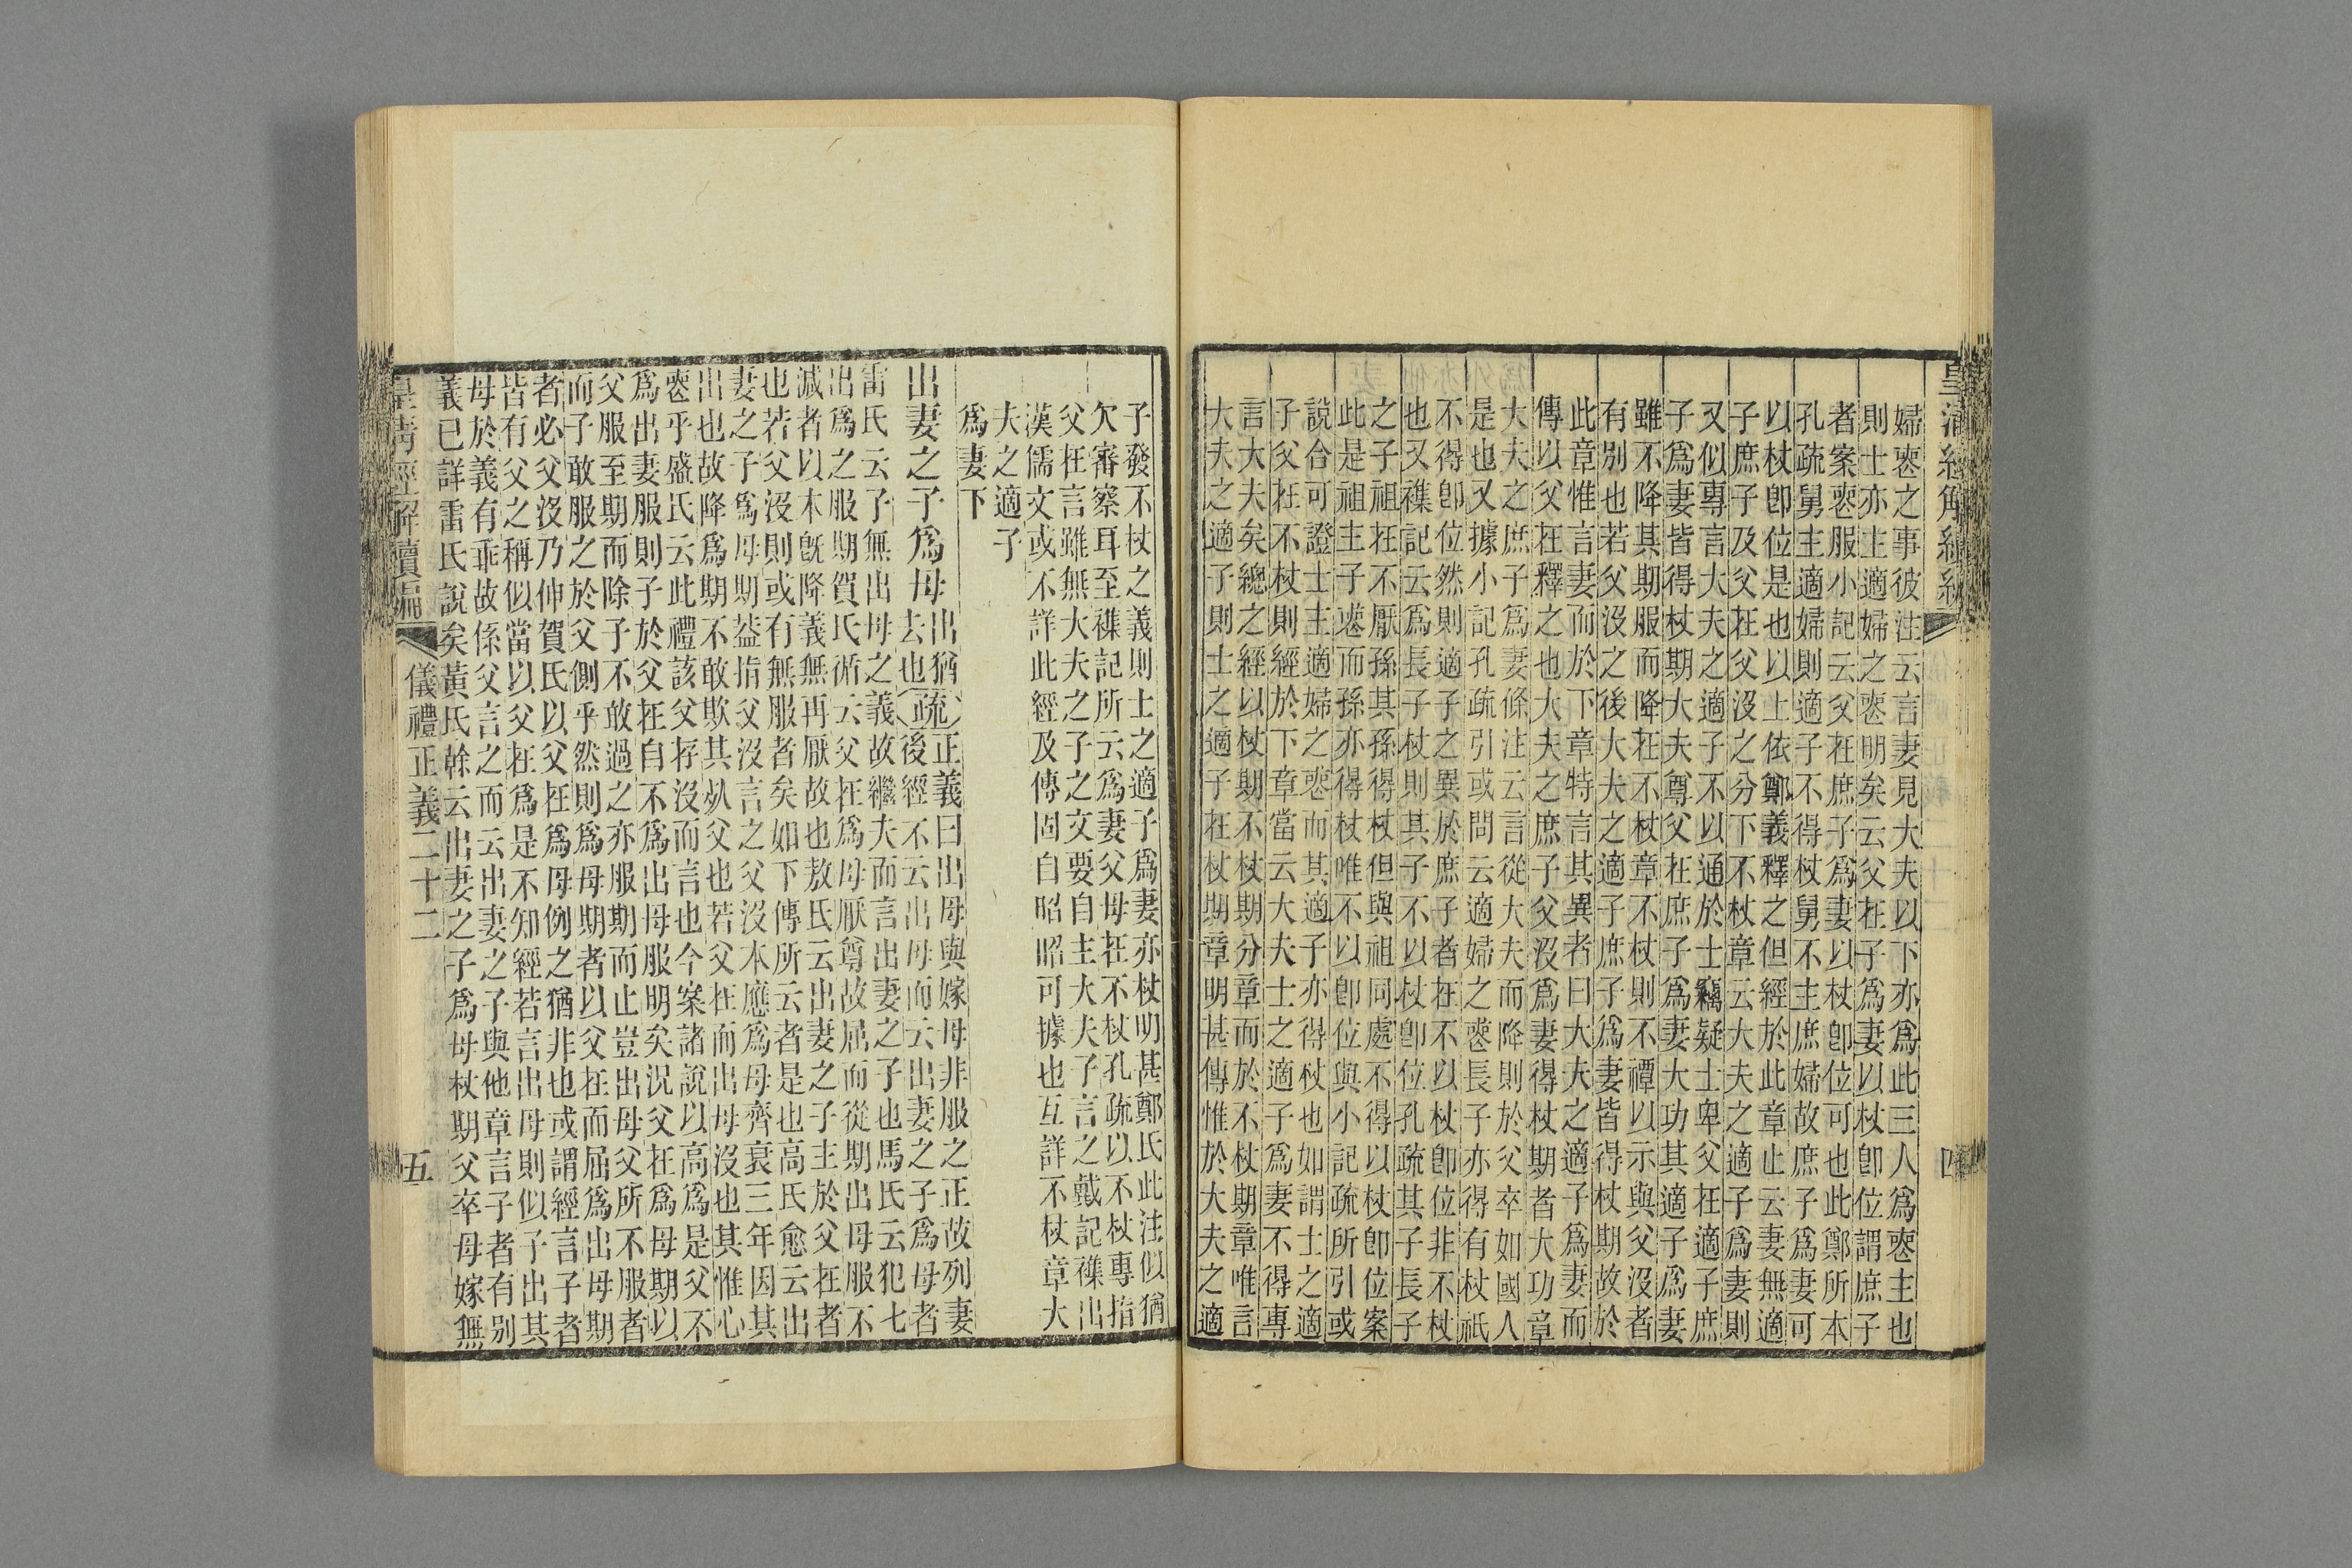 皇清經解續編
四
婦喪之事彼注云言妻見大夫以下亦爲此三人爲喪主也
則士亦主適婦之喪明矣云父在子爲妻以杖卽位謂庶子
者案喪服小記云父在庶子爲妻以杖卽位可也此鄭所本
孔疏舅主適婦則適子不得杖舅不主庶婦故庶子爲妻可
以杖卽位是也以上依鄭義釋之但經於此章止云妻無適
子庶子及父在父沒之分下不杖章云大夫之適子爲妻則
又似專言大夫之適子不以通於士竊疑士卑父在適子庶
子爲妻皆得杖期大夫尊父在庶子爲妻大功其適子爲妻
雖不降其期服而降在不杖章不杖則不禫以示與父沒者
有別也若父沒之後大夫之適子庶子爲妻皆得杖期故於
此章惟言妻而於下章特言其異者曰大夫之適子爲妻而
傳以父在釋之也大夫之庶子父沒爲妻得杖期者大功章
大夫之庶子爲妻條注云言從大夫而降則於父卒如國人
是也又據小記孔疏引或問云適婦之喪長子亦得有杖祇
不得卽位然則適子之異於庶子者在不以杖卽位非不杖
也又襍記云爲長子杖則其子不以杖卽位孔疏其子長子
之子祖在不厭孫其孫得杖但與祖同處不得以杖卽位案
此是祖主子喪而孫亦得杖唯不以卽位與小記疏所引或
說合可證士主適婦之喪而其適子亦得杖也如謂士之適
子父在不杖則經於下章當云大夫士之適子爲妻不得專
言大夫矣總之經以杖期不杖期分章而於不杖期章唯言
大夫之適子則士之適子在杖期章明甚傳惟於大夫之適
子發不杖之義則士之適子爲妻亦杖明甚鄭氏此注似猶
欠審察耳至襍記所云爲妻父母在不杖孔疏以不杖專指
父在言雖無大夫之子之文要自主大夫子言之戴記襍出
漢儒文或不詳此經及傳固自昭昭可據也互詳不杖章大
夫之適子
爲妻下
出妻之子爲母
出猶
去也
疏
正義曰出母與嫁母非服之正故列妻
後經不云出母而云出妻之子爲母者
雷氏云子無出母之義故繼夫而言出妻之子也馬氏云犯七
出爲之服期賀氏循云父在爲母厭尊故屈而從期出母服不
減者以本旣降義無再厭故也敖氏云出妻之子主於父在者
也若父沒則或有無服者矣如下傳所云者是也高氏愈云出
妻之子爲母期葢指父沒言之父沒本應爲母齊衰三年因其
出也故降爲期不敢欺其死父也若父在而出母沒也其惟心
喪乎盛氏云此禮該父存沒而言也今案諸說以高爲是父不
爲出妻服則子於父在自不爲出母服明矣況父在爲母期以
父服至期而除子不敢過之亦服期而止豈出母父所不服者
而子敢服之於父側乎然則爲母期者以父在而屈爲出母期
者必父沒乃伸賀氏以父在爲母例之猶非也或謂經言子者
皆有父之稱似當以父在爲是不知經若言出母則似子出其
母於義有乖故係父言之而云出妻之子與他章言子者有別
義已詳雷氏說矣黃氏榦云出妻之子爲母杖期父卒母嫁無
皇清經解續編
儀禮正義二十二
五